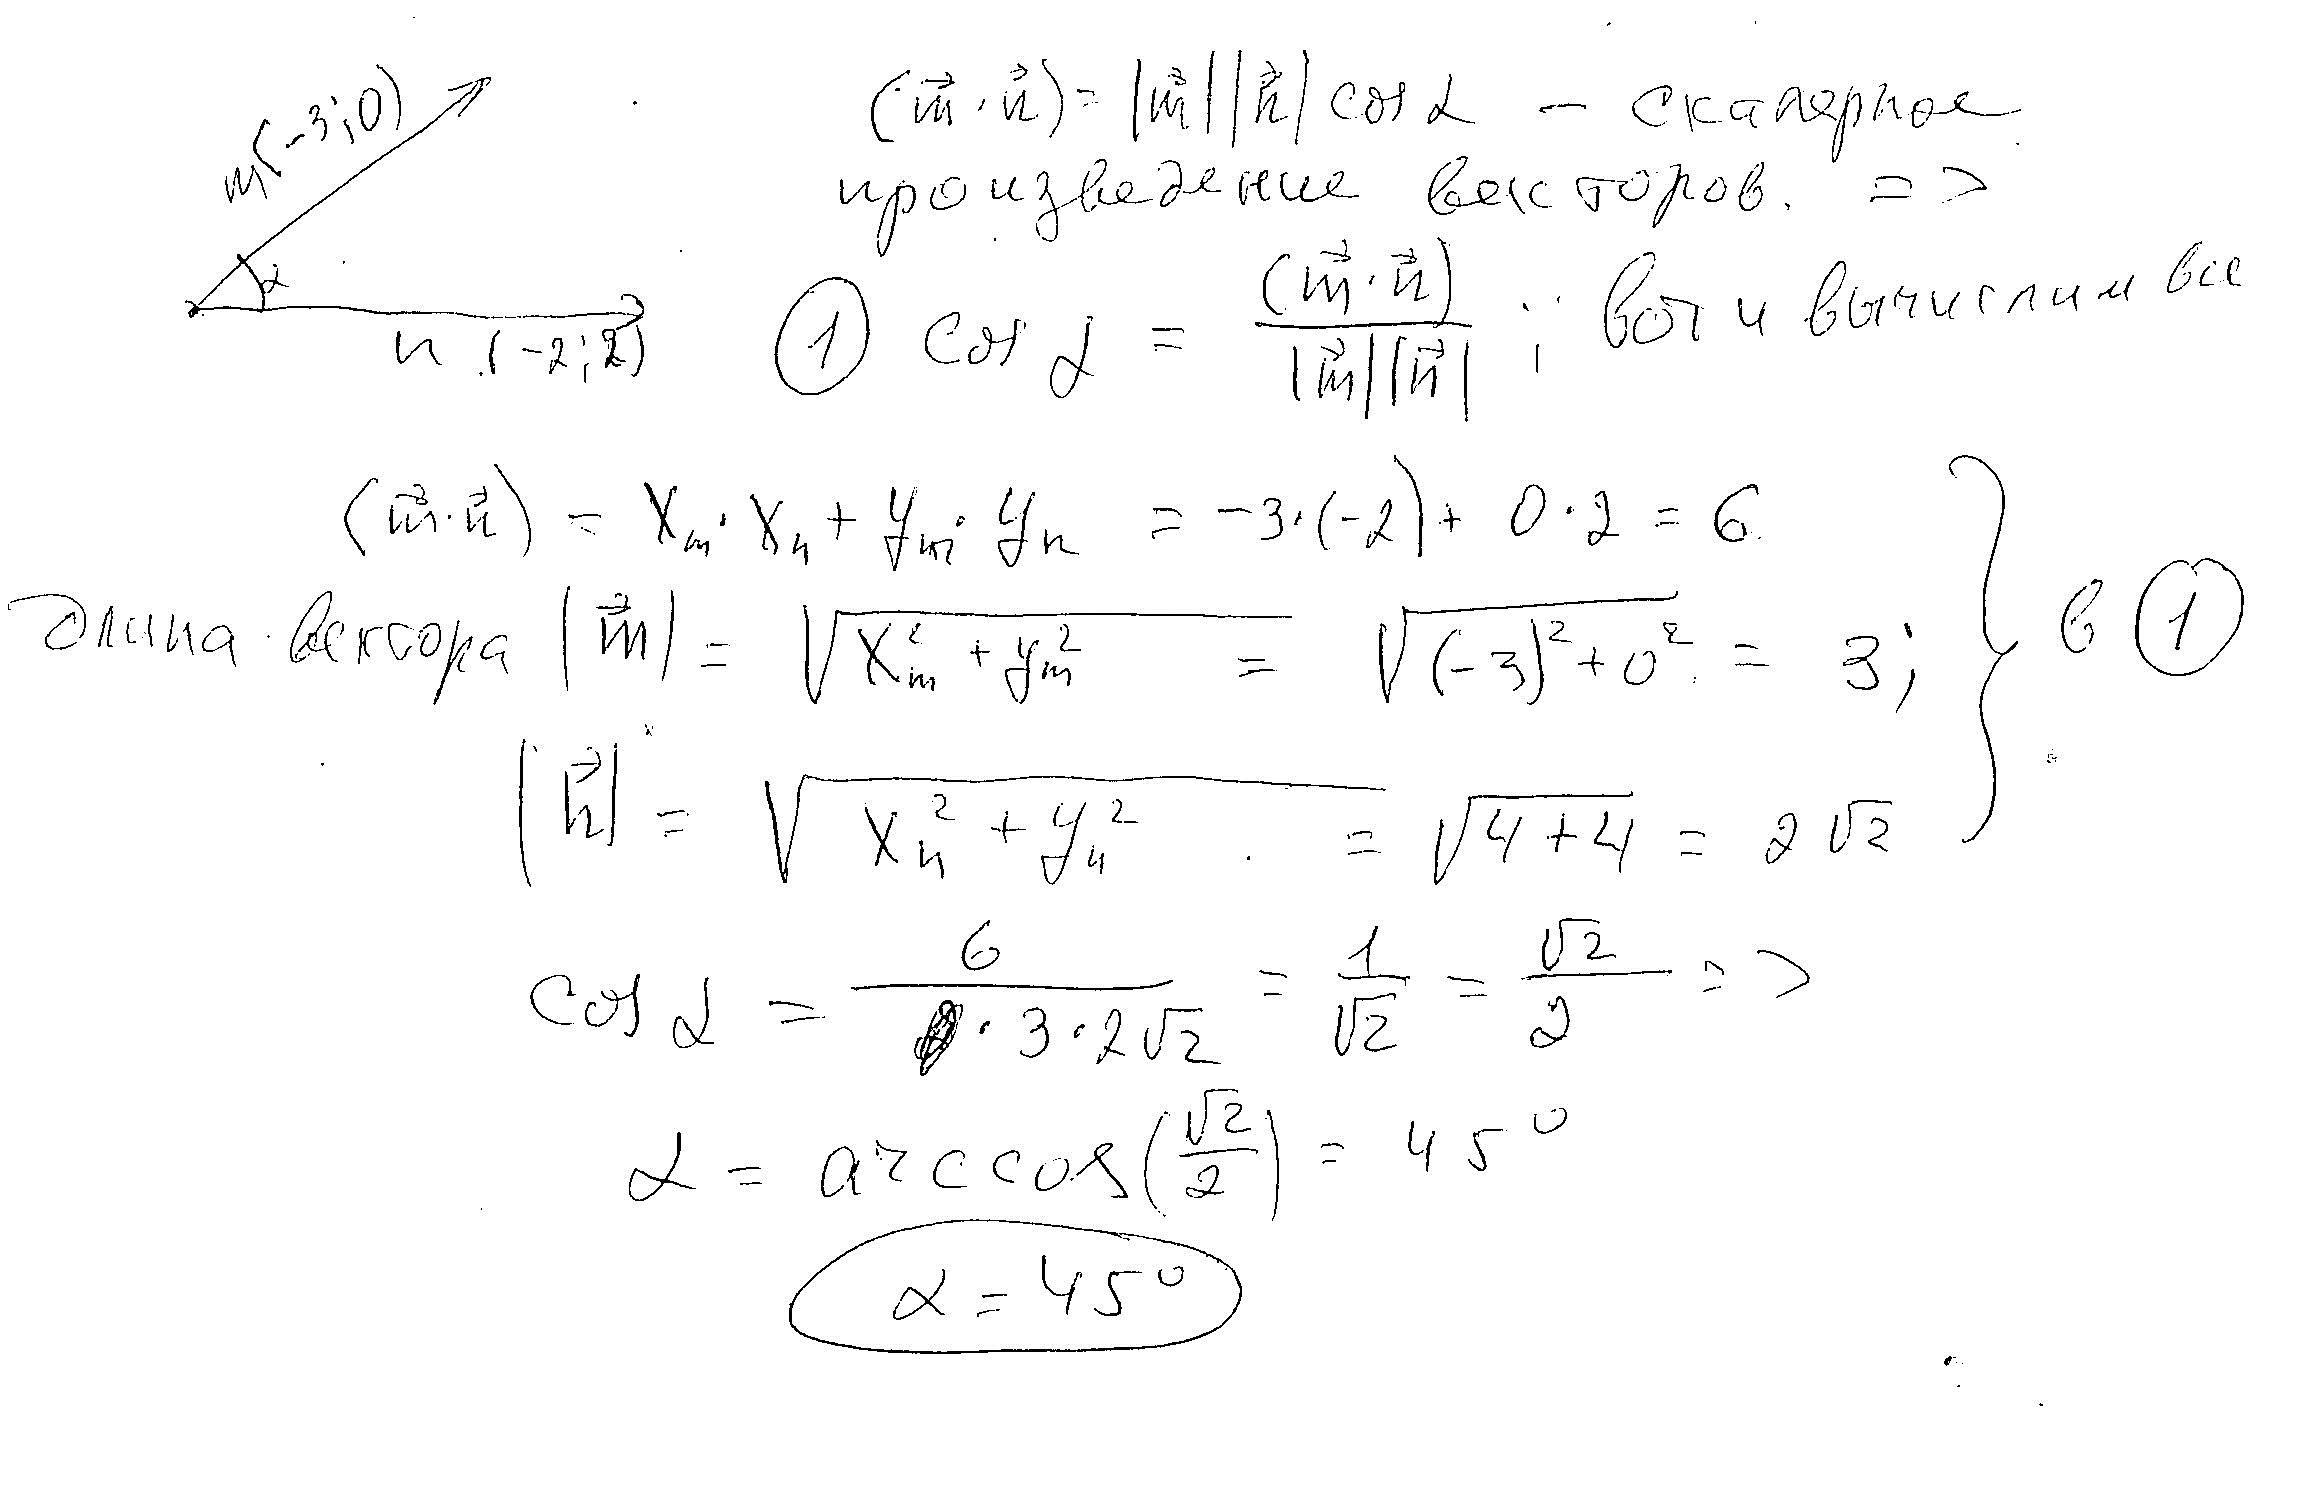 m(-3;0)
α
n (-2;2)
(m⃗·n⃗)= |m⃗||n⃗| cos α — скалярное
произведение векторов. =>
① cos α = (m⃗·n⃗) / |m⃗||n⃗| ; вот и вычислим все
(m⃗·n⃗) = Xₘ·Xₙ + yₘ·yₙ = -3·(-2) + 0·2 = 6
длина вектора |m⃗| = √(Xₘ² + yₘ²) = √((-3)² + 0²) = 3; } в ①
|n⃗| = √(Xₙ² + yₙ²) = √(4+4) = 2√2
cos α = 6 / · 3·2√2 = 1/√2 = √2/2 =>
α = arccos(√2/2) = 45°
α = 45°